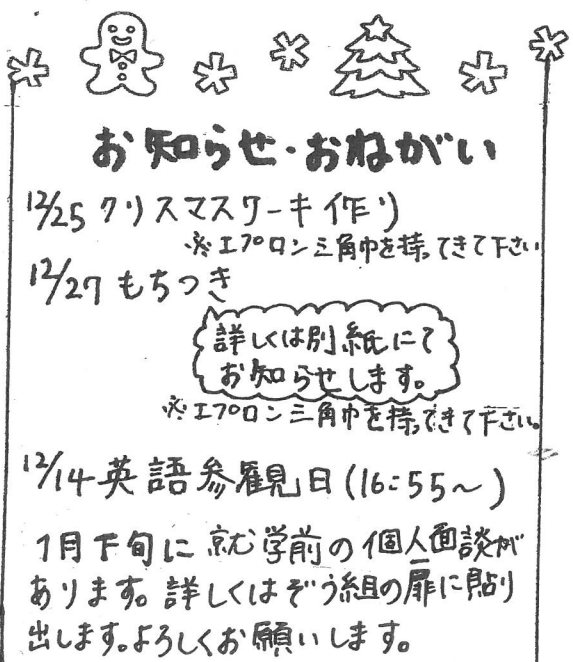 お知らせ・おねがい
12/25 クリスマスケーキ作り
※エプロン三角巾を持ってきて下さい
12/27 もちつき
詳しくは別紙にて
お知らせします。
※エプロン三角巾を持ってきて下さい。
12/14 英語参観日(16:55~)
1月下旬に就学前の個人面談が
あります。詳しくはぞう組の扉に貼り
出します。よろしくお願いします。